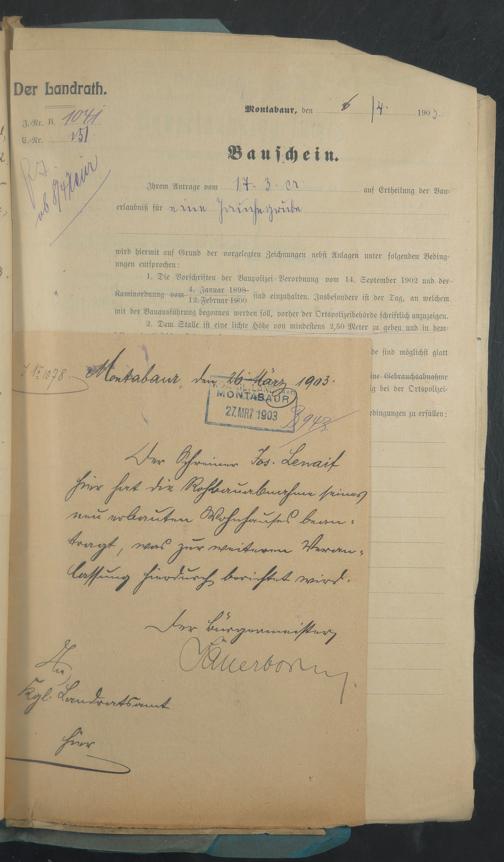 Der Landrath.
J.-Nr. B. 1041
E.-Nr. 151
Montabaur, den 6/4. 1903.
Bauschein.
Ihrem Antrage vom 17. 3. cr auf Ertheilung der Bau-
erlaubniß für eine Jauchegrube
wird hiermit auf Grund der vorgelegten Zeichnungen nebst Anlagen unter folgenden Bedin-
gungen entsprochen:
1. Die Vorschriften der Baupolizei-Verordnung vom 14. September 1902 und der
Kaminordnung vom 4. Januar 1898 / 12. Februar 1900 sind einzuhalten. Insbesondere ist der Tag, an welchem
mit der Bauausführung begonnen werden soll, vorher der Ortspolizeibehörde schriftlich anzuzeigen.
2. Dem Stalle ist eine lichte Höhe von mindestens 2,50 Meter zu geben und in dem-
de sind möglichst glatt
ne Gebrauchsabnahme
ig bei der Ortspolizei-
edingungen zu erfüllen:
J. № 1078
Montabaur, den 26 März 1903.
MONTABAUR
27. MRZ 1903
Der Schreiner Jos.
hier hat die Rohbauabnahme seines
neu erbauten Wohnhauses bean-
tragt, was zur weiteren Veran-
lassung hierdurch berichtet wird.
Der Bürgermeister
Sauerborn
An
Kgl. Landratsamt
hier